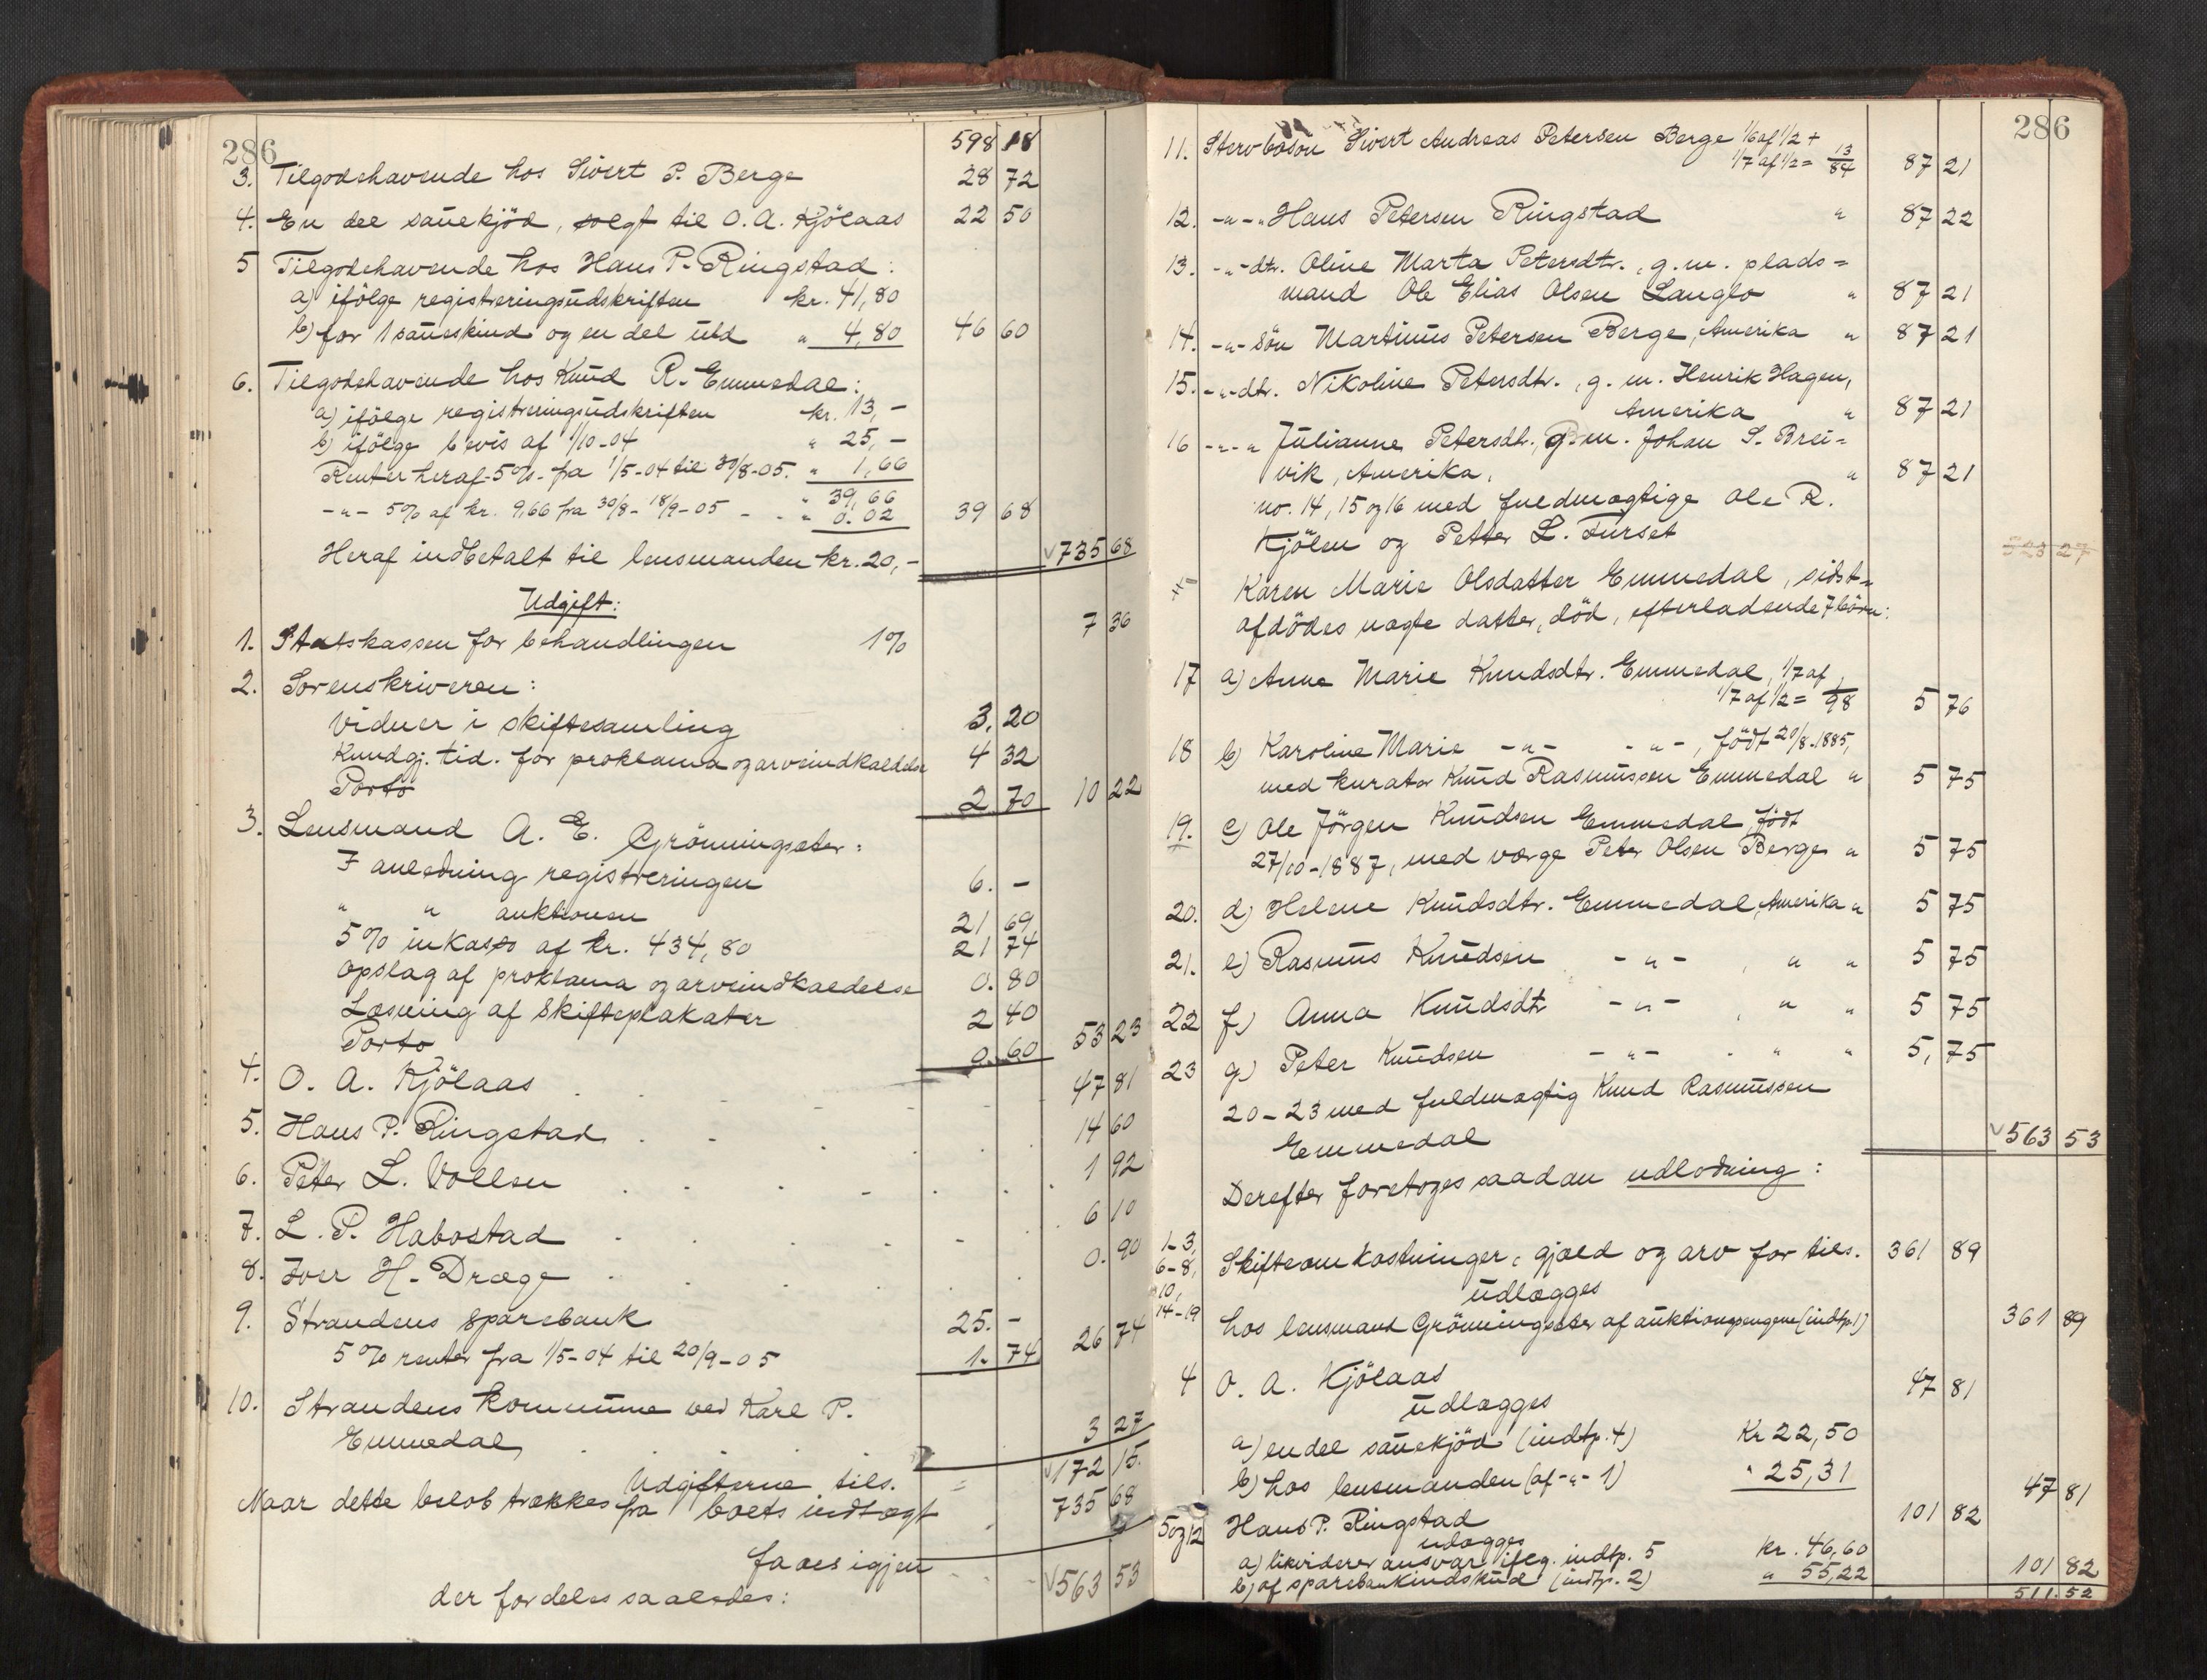 286
598 18
3. Tilgodehavende hos Sivert P. Berge 28 72
4. En del sauekjöd, solgt til O. A. Kjölaas 22 50
5 Tilgodehavende hos Hans P. Ringstad:
a) ifölge registreringsudskriften kr. 41,80
b) for 1 saueskind og en del uld " 4,80 46 60
6. Tilgodehavende hos Knud R. Emmedal:
a) ifölge registreringsudskriften kr. 13,-
b) ifölge bevis af 1/10-04 " 25,-
Renter heraf 5% fra 1/5-04 til 30/8-05. " 1,66
" 39,66
-"- 5% af kr. 9,66 fra 30/8-18/9-05 - - " 0.02 39 68
Heraf indbetalt til lensmanden kr. 20,- 735 68
Udgift:
1. Statskassen for behandlingen 1% 7 36
2. Sorenskriveren:
Vidner i skiftesamling 3. 20
Kundgj. tid. for proklama og arveindkaldelse 4 32
Porto 2 70 10 22
3. Lensmand A. E. Grönningsæter:
I anledning registreringen 6. -
" " auktionen 21 69
5% inkasso af kr. 434,80 21 74
Opslag af proklama og arveindkaldelse 0. 80
Læsning af skifteplakater 2 40
Porto 0. 60 53 23
4. O. A. Kjölaas 47 81
5. Hans P. Ringstad 14 60
6. Peter L. Vollen 1 92
7. L. P. Habostad 6 10
8. Iver H. Dræge 0. 90
9. Strandens sparebank 25. -
5% renter fra 1/5-04 til 20/9-05 1. 74 26 74
10. Strandens kommune ved Karl P.
Emmedal 3 27
Udgifterne tils. = 172 15.
Naar dette belöb trækkes fra boets indtægt 735 68
faaes igjen 563 53
der fordeles saaledes:
286
11. Stervbosön Sivert Andreas Petersen Berge 1/6 af 1/2 +
1/7 af 1/2 = 13/84 87 21
12. -"-" Hans Petersen Ringstad " 87 22
13. -"-dtr. Oline Marta Petersdtr., g.m. plads=
mand Ole Elias Olsen Langlo " 87 21
14. -"- sön Martinus Petersen Berge, Amerika " 87 21
15. -"-dtr. Nikoline Petersdtr., g.m. Henrik Hagen,
Amerika " 87 21
16 -"-" Julianne Petersdt., g.m. Johan S. Brei=
vik, Amerika. " 87 21
no. 14, 15 og 16 med fuldmægtige Ole R.
Kjölen og Petter L. Furset 523 27
Karen Marie Olsdatter Emmedal, sidst=
afdödes ægte datter, död, efterladende 7 börn:
17 a) Anne Marie Knudsdtr. Emmedal, 1/7 af
1/7 af 1/2 = 1/98 5 76
18 b) Karoline Marie -"- -"-, födt 20/8-1885,
med kurator Knud Rasmussen Emmedal " 5 75
19. c) Ole Jörgen Knudsen Emmedal, födt
27/10-1887, med værge Peter Olsen Berge " 5 75
20. d) Helene Knudsdtr. Emmedal, Amerika " 5 75
21. e) Rasmus Knudsen -"- , " " 5 75
22 f) Anna Knudsdtr -"- , " " 5 75
23 g) Peter Knudsen -"- . " " 5, 75
20-23 med fuldmægtig Knud Rasmussen
Emmedal 563 53
Derefter foretoges saadan udlodning:
1-3, 6-8, 10, 14-19 Skifteomkostninger, gjæld og arv for tils. 361 89
udlægges
hos lensmand Grönningsæter af auktionspengene (indtp. 1) 361 89
4 O. A. Kjölaas 47 81
udlægges
a) en del sauekjöd (indtp. 4) Kr 22,50
b) hos lensmanden (af -"- 1) " 25,31 47 81
5 og 12 Hans P. Ringstad 101 82
udlægges
a) likviderer ansvar iflg. indtp. 5 kr. 46,60
b) af sparebankindskud (indtp. 2) " 55,22 101 82
511. 52